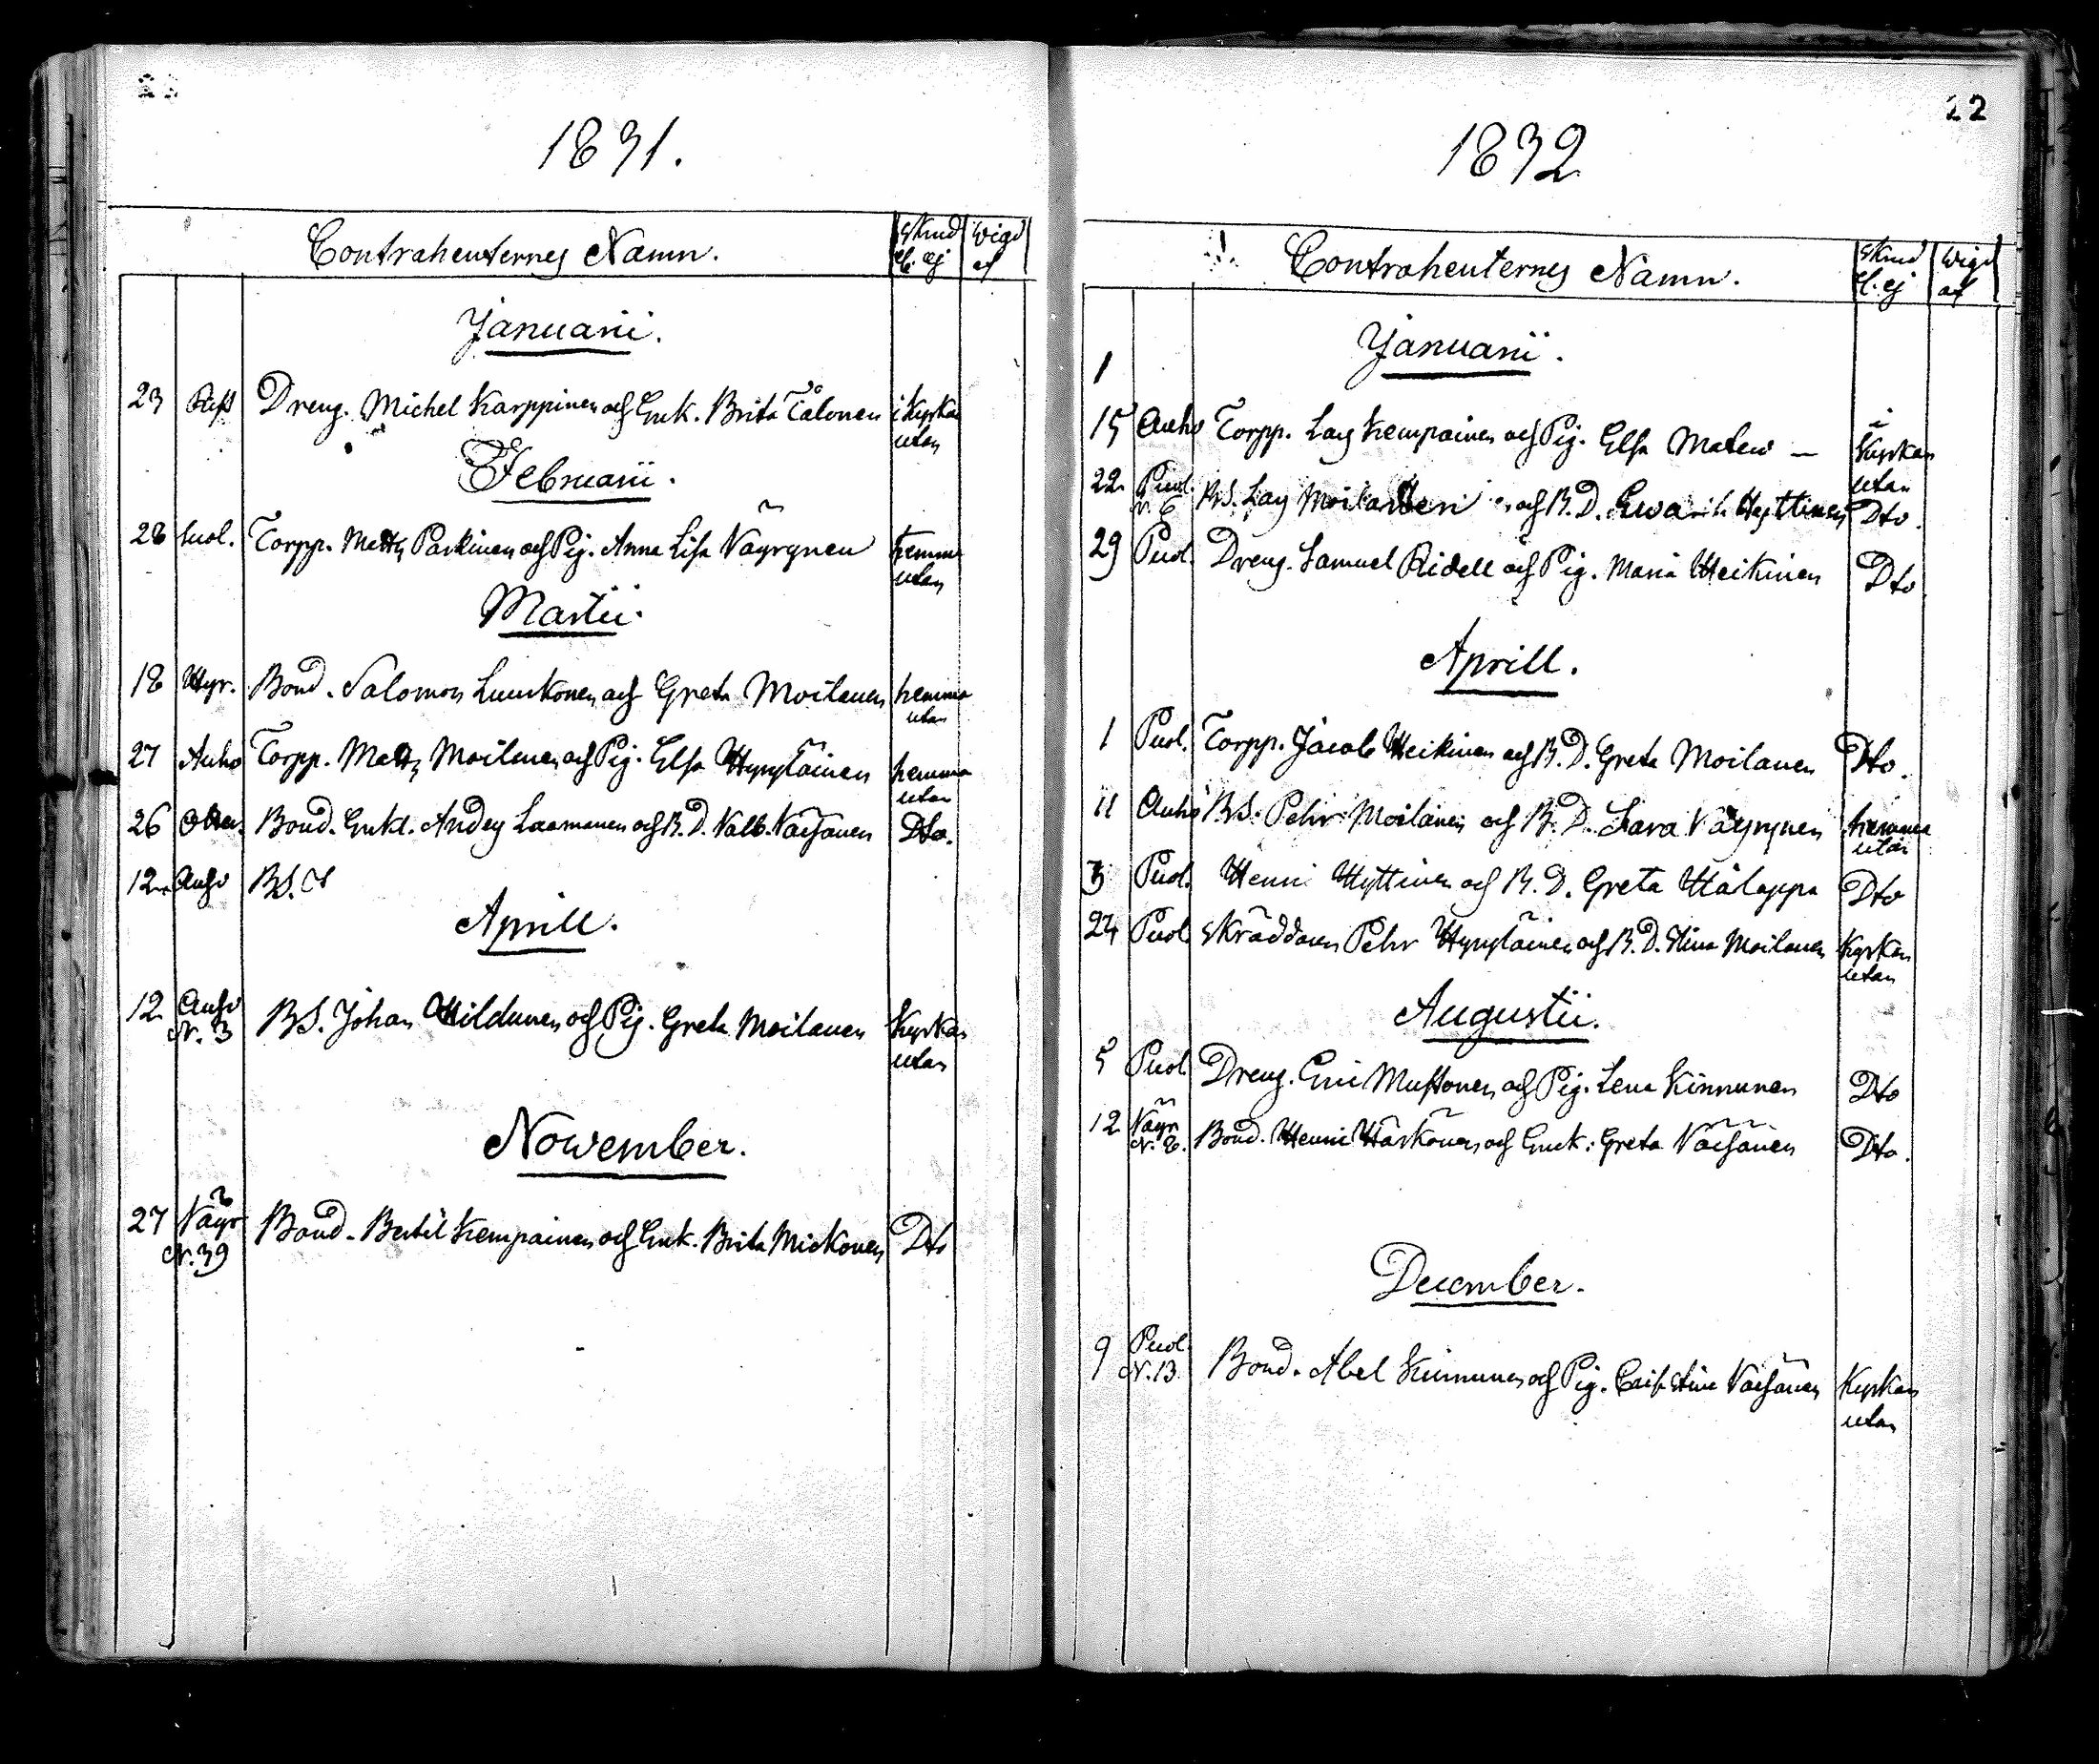 1831.
Contrahenternes Namn. Skrud el. ej Wigd af
Januarii.
23 Dreng. Michel Karppinen och Enk. Brita Tålonen i Kyrkan
utan
Februarii.
28 Suol. Torpp. Matts Parkinen och Pig. Anna Lisa Väyrynen hemma
utan
Martii.
18 Hyr. Bond. Salomon Luukonen och Greta Moilanen hemma
utan
27 Auho Torpp. Matts Moilanen och Pig. Elsa Hyrylainen hemma
utan
26 Bond. Enkl. Anders Laamanen och B.D. Valb. Väisänen Dto.
12 Auho B.S.
Aprill.
12 Auho B.S. Johan Hildunen och Pig. Greta Moilanen Kyrkan
N. 3 utan
Nowember.
27 Väyr Bond. Bertil Kempainen och Enk. Brita Mickonen Dto
N. 39
22
1832
Contrahenternes Namn. Skrud el. ej Wigd af
Januarii.
1
15 Auho Torpp. Lars Kempainen och Pig. Elsa Matero — i
Kyrkan
utan
22 Puol. B.S. Lars Moilanen och B.D. Ewa Hyttinen Dto.
N. 6
29 Puol. Dreng. Samuel Ridell och Pig. Maria Heikinen Dto
Aprill.
1 Puol. Torpp. Jacob Heikinen och B.D. Greta Moilanen Dto.
11 Auho B.S. Pehr Moilanen och B.D. Sara Väyrynen hemma
utan
3 Puol. Henric Hyttinen och B.D. Greta Hålappa Dto
24 Puol. Skräddaren Pehr Hyryläinen och B.D. Stina Moilanen Kyrkan
utan
Augustii.
5 Puol. Dreng. Eric Mustonen och Pig. Lena Kinnunen Dto
12 Väyr. Bond. Henric Härkönen och Enk. Greta Väisänen Dto.
December.
9 Puol. Bond. Abel Kinnunen och Pig. Stina Väisänen Kyrkan
N. 13 utan